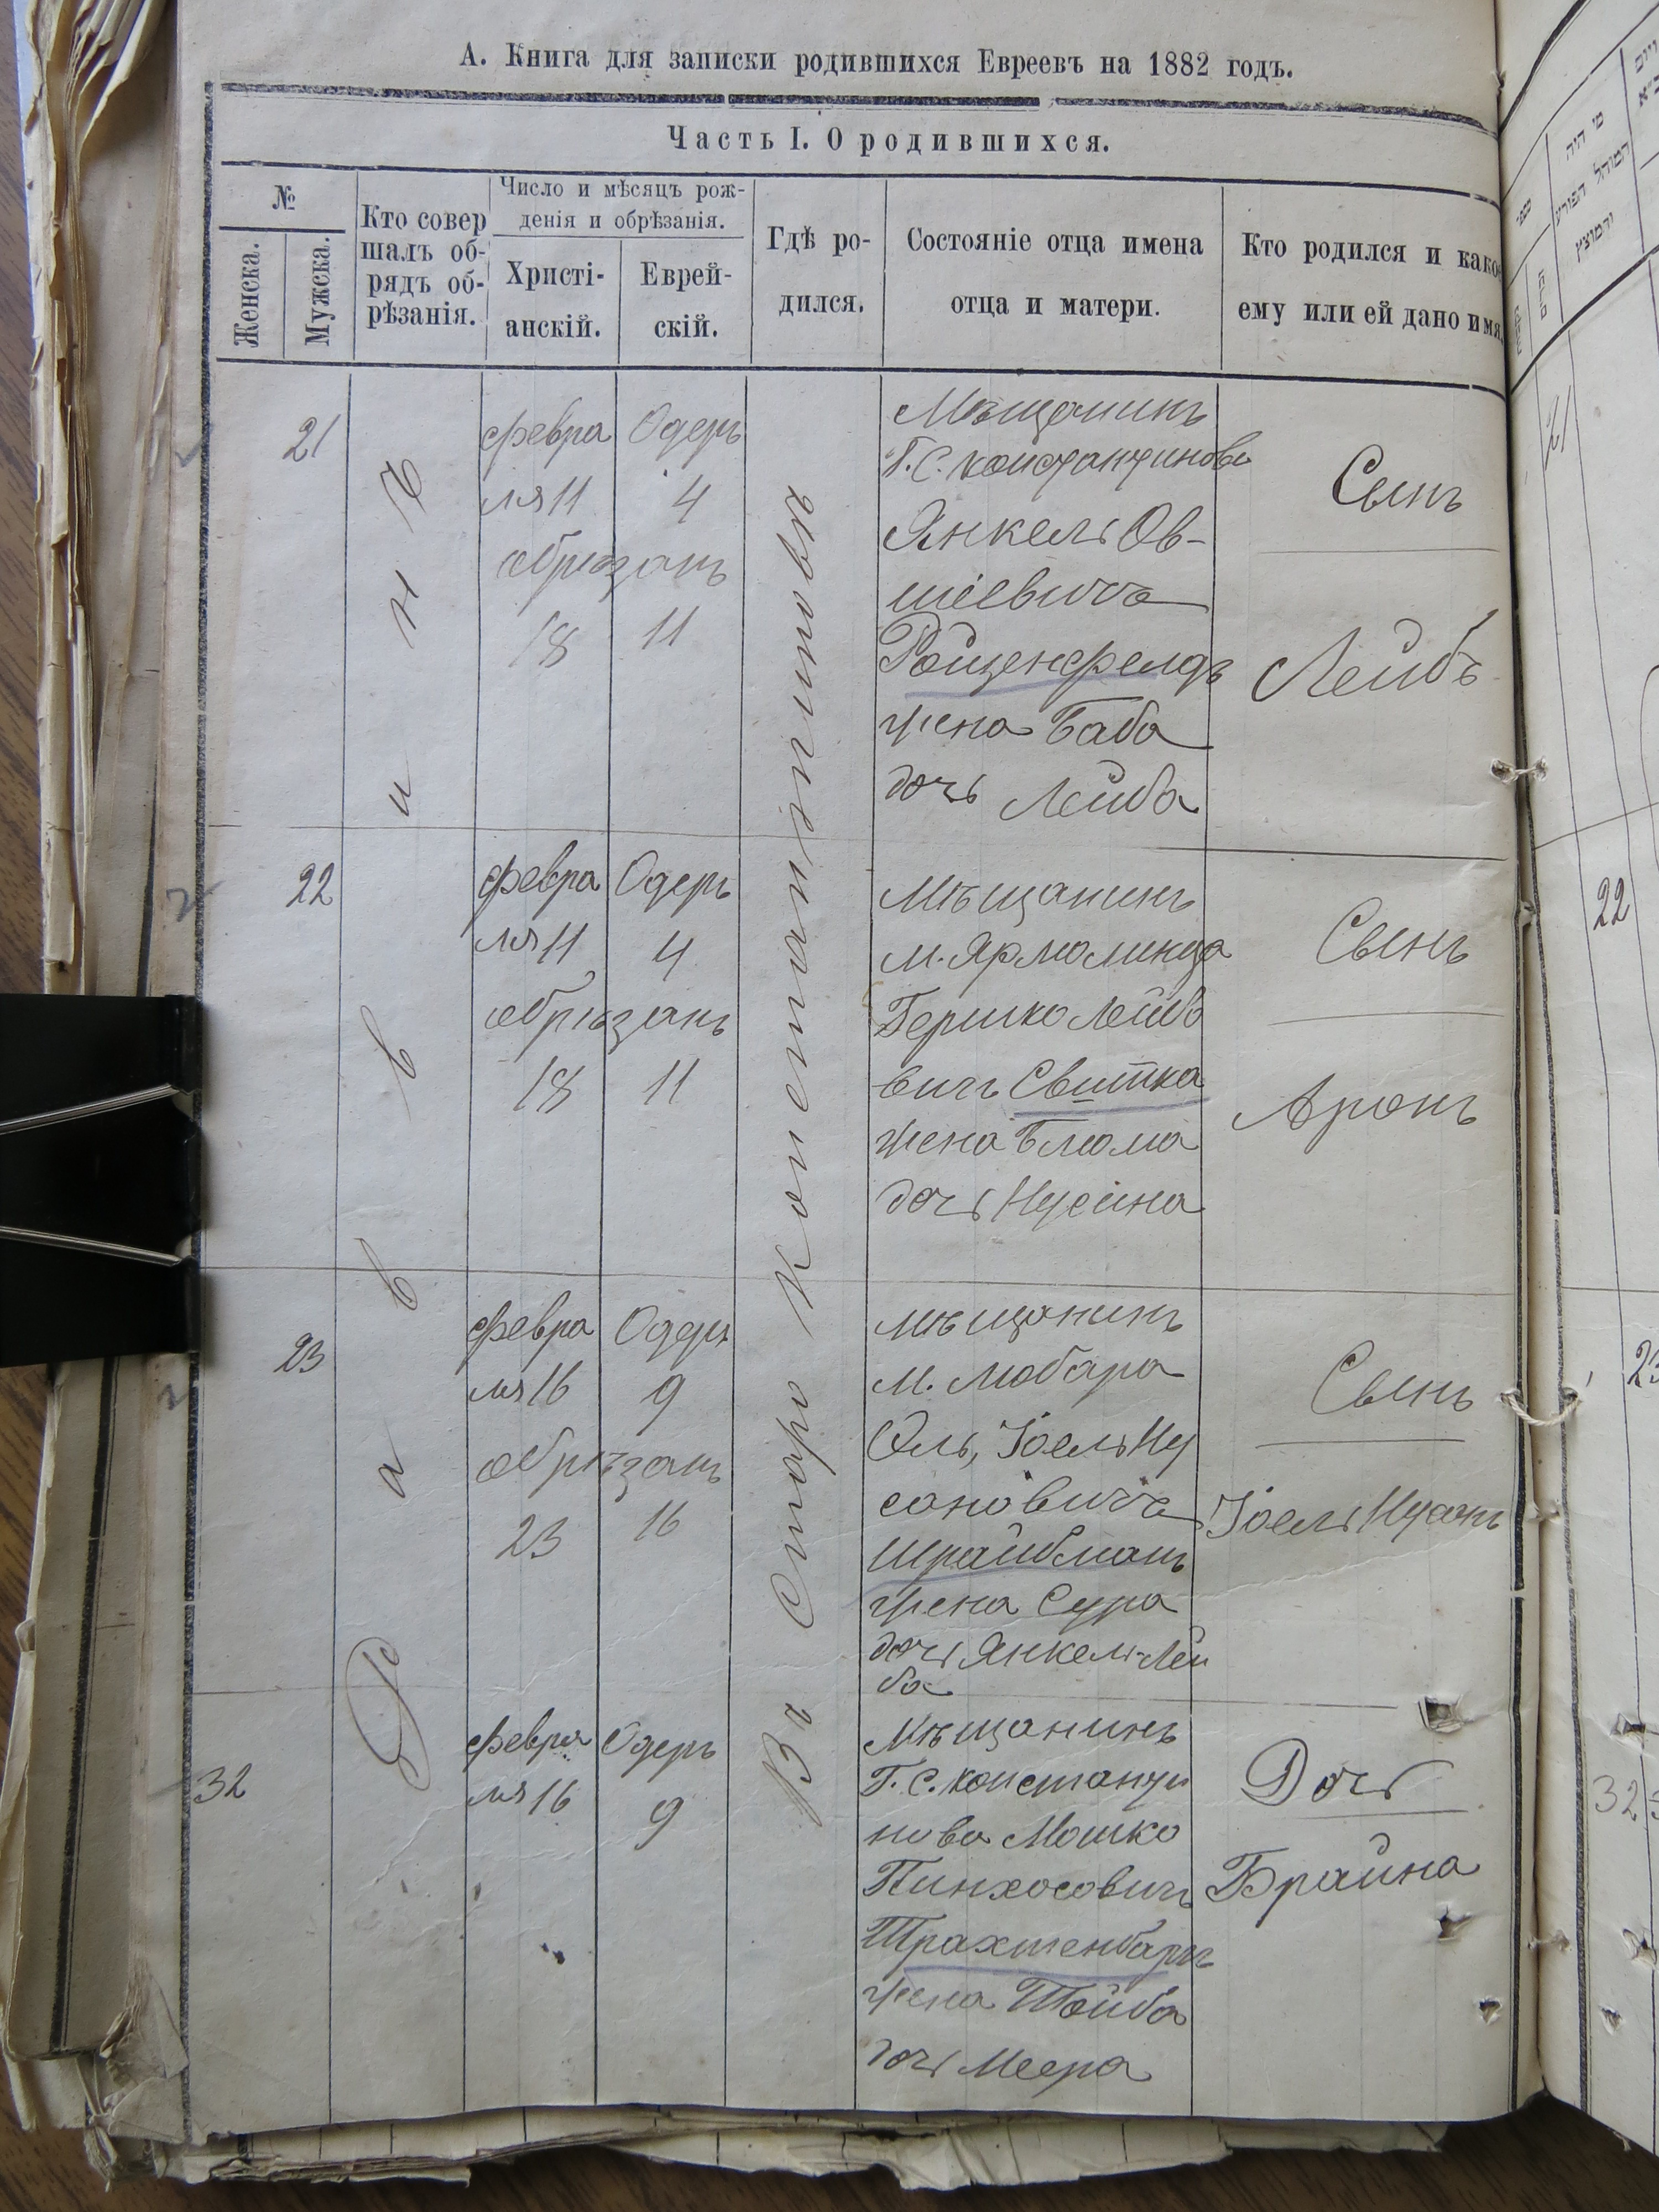 А. Книга для записки родившихся Евреевъ на 1882 годъ.
Часть I. О родившихся.
№
Женска.
Мужска.
Кто совер
шалъ об-
рядъ об-
рѣзанія.
Число и мѣсяцъ рож-
денія и обрѣзанія.
Христі-
анскій.
Еврей-
скій.
Гдѣ ро-
дился.
Состояніе отца имена
отца и матери.
Кто родился и како
ему или ей дано имя
Раввинъ
Въ Старо Константиновѣ
21
февра
ля 11
Одеръ
4
обрѣзанъ
18
11
Мѣщанинъ
Г. С. Константинова
Янкель Ов-
шіевичъ
Ройзенфелдъ
жена Баба
дочь Лейба
Сынъ
Лейбъ
22
февра
ля 11
Одеръ
4
обрѣзанъ
18
11
Мѣщанинъ
м. Ярмолинца
Бершко Лейбо
вичъ Свитка
жена Блюма
дочь Нусина
Сынъ
Аронъ
23
февра
ля 16
Одеръ
9
обрѣзанъ
23
16
Мѣщанинъ
м. Любара
Іоель Ну
сановичъ
Шрайбманъ
жена Сура
дочь Янкель-Лей
ба
Сынъ
Іоель Нусанъ
32
февра
ля 16
Одеръ
9
Мѣщанинъ
Г. С. Константи
нова Мошко
Пинхосовичъ
Трахтенбаргъ
жена Тойба
дочь Меера
Дочь
Брайна
מי היה
המוהל הפורע
והמוצץ
21
22
23
32